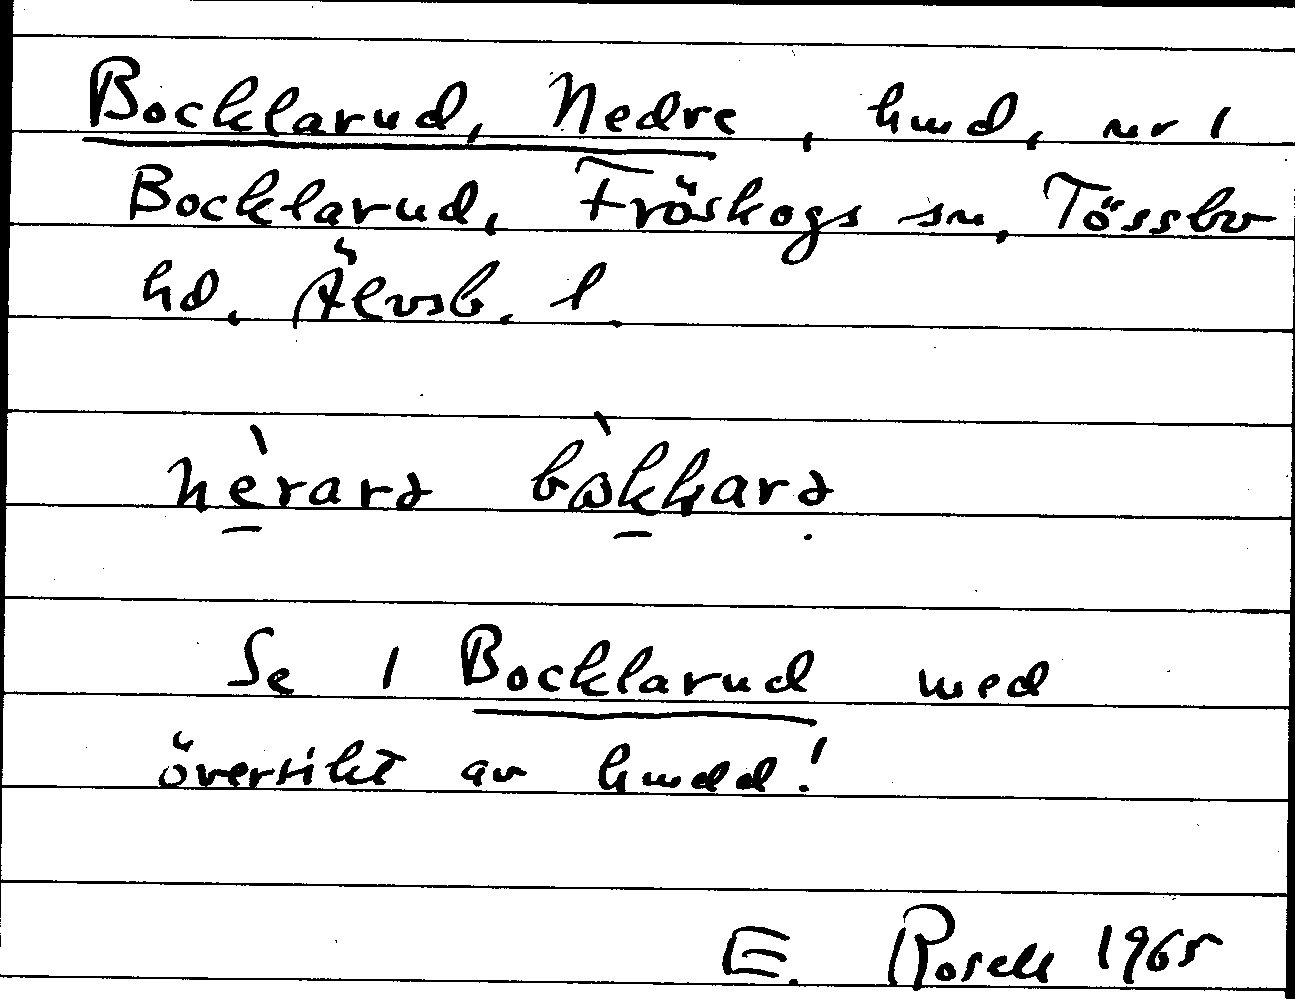 Bocklarud, Nedre, hmd, nr 1
Bocklarud, Fröskogs sn, Tössbo
hd, Älvsb. l.
nèrarə bòkkarə
Se 1 Bocklarud med
översikt av hmdd!
E. Rosell 1965